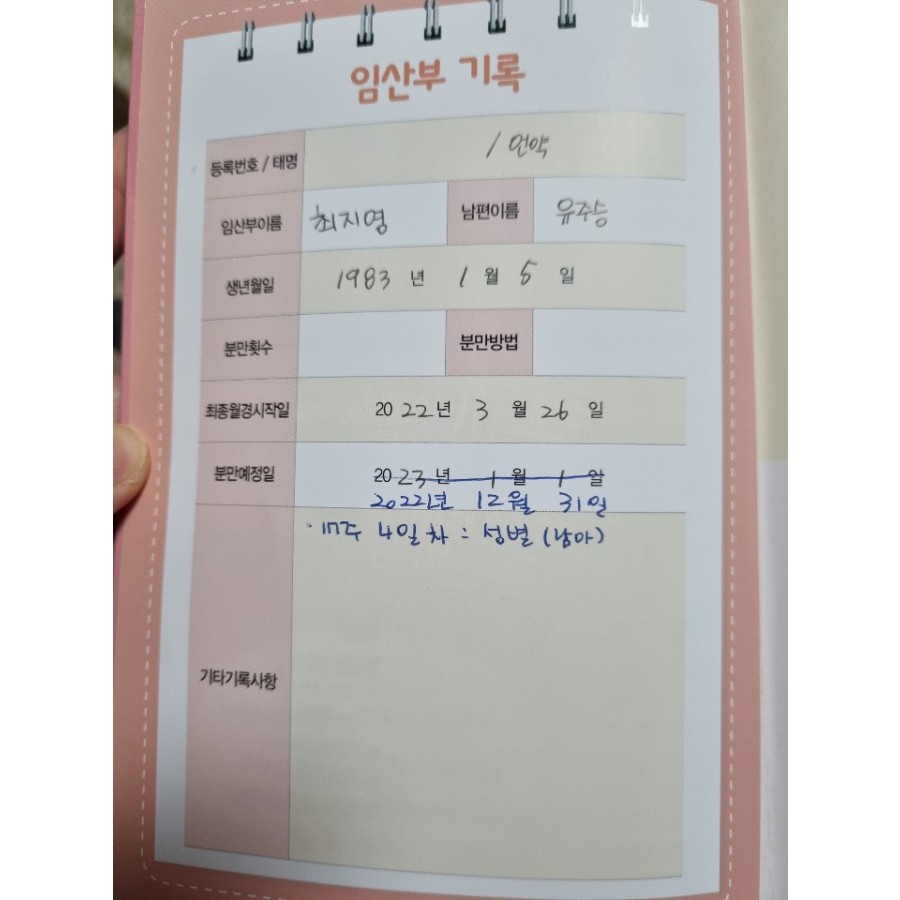 임산부 기록
등록번호 / 태명 / 언약
임산부이름 최지영 남편이름 유주승
생년월일 1983 년 1 월 5 일
분만횟수 분만방법
최종월경시작일 2022년 3 월 26 일
분만예정일 2023년 1 월 1 일
2022년 12월 31일
17주 4일차 : 성별 (남아)
기타기록사항